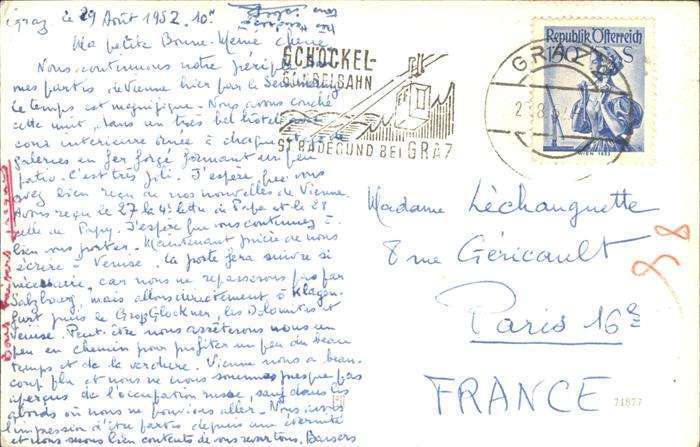 Graz le 29 Août 1952. 10h
Ma petite Bonne-Mémé chérie
Nous continuons notre périple
mes partis de Vienne hier par le Semmering
le temps est magnifique. Nous avons couché
cette nuit dans un très bel hôtel
cour intérieure ornée à chaque
galeries en fer forgé formant un peu
patio. C'est très joli. J'espère que vous
avez bien reçu de nos nouvelles de Vienne.
Avons reçu le 27 la 4e lettre de Papa et le 28
celle de Papy. J'espère que vous continuez à
bien vous porter. Maintenant prière de nous
écrire à Venise. la poste fera suivre si
nécessaire, car nous ne repasserons pas par
Salzbourg, mais allons directement à Klagen-
furt puis le GroßGlockner, les Dolomites et
Venise. Peut-être nous arrêterons nous un
peu en chemin pour profiter un peu du beau
temps et de la verdure. Vienne nous a beau-
coup plu et nous ne nous sommes presque pas
aperçus de l'occupation russe, sauf dans les
abords où nous ne pouvions aller. Nous avons
l'impression d'être partis depuis une éternité
et nous serons bien contents de vous revoir tous. Baisers
Bons baisers
SCHÖCKEL-
SEILBAHN
ST RADEGUND BEI GRAZ
GRAZ
Republik Österreich
S
WIEN
Madame Léchanguette
8 rue Géricault
Paris 16e
FRANCE
38
71877